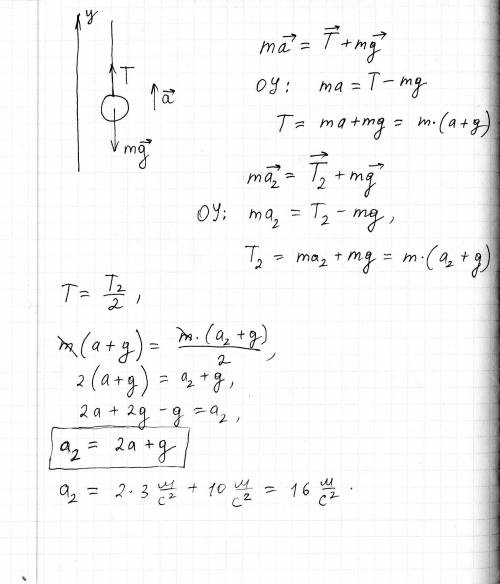 y
T
a⃗
mg⃗
ma⃗ = T⃗ + mg⃗
OY: ma = T − mg
T = ma + mg = m·(a+g)
ma⃗₂ = T⃗₂ + mg⃗
OY: ma₂ = T₂ − mg,
T₂ = ma₂ + mg = m·(a₂+g)
T = T₂/2,
m(a+g) = m·(a₂+g)/2,
2(a+g) = a₂+g,
2a + 2g − g = a₂,
a₂ = 2a + g
a₂ = 2·3 м/с² + 10 м/с² = 16 м/с².